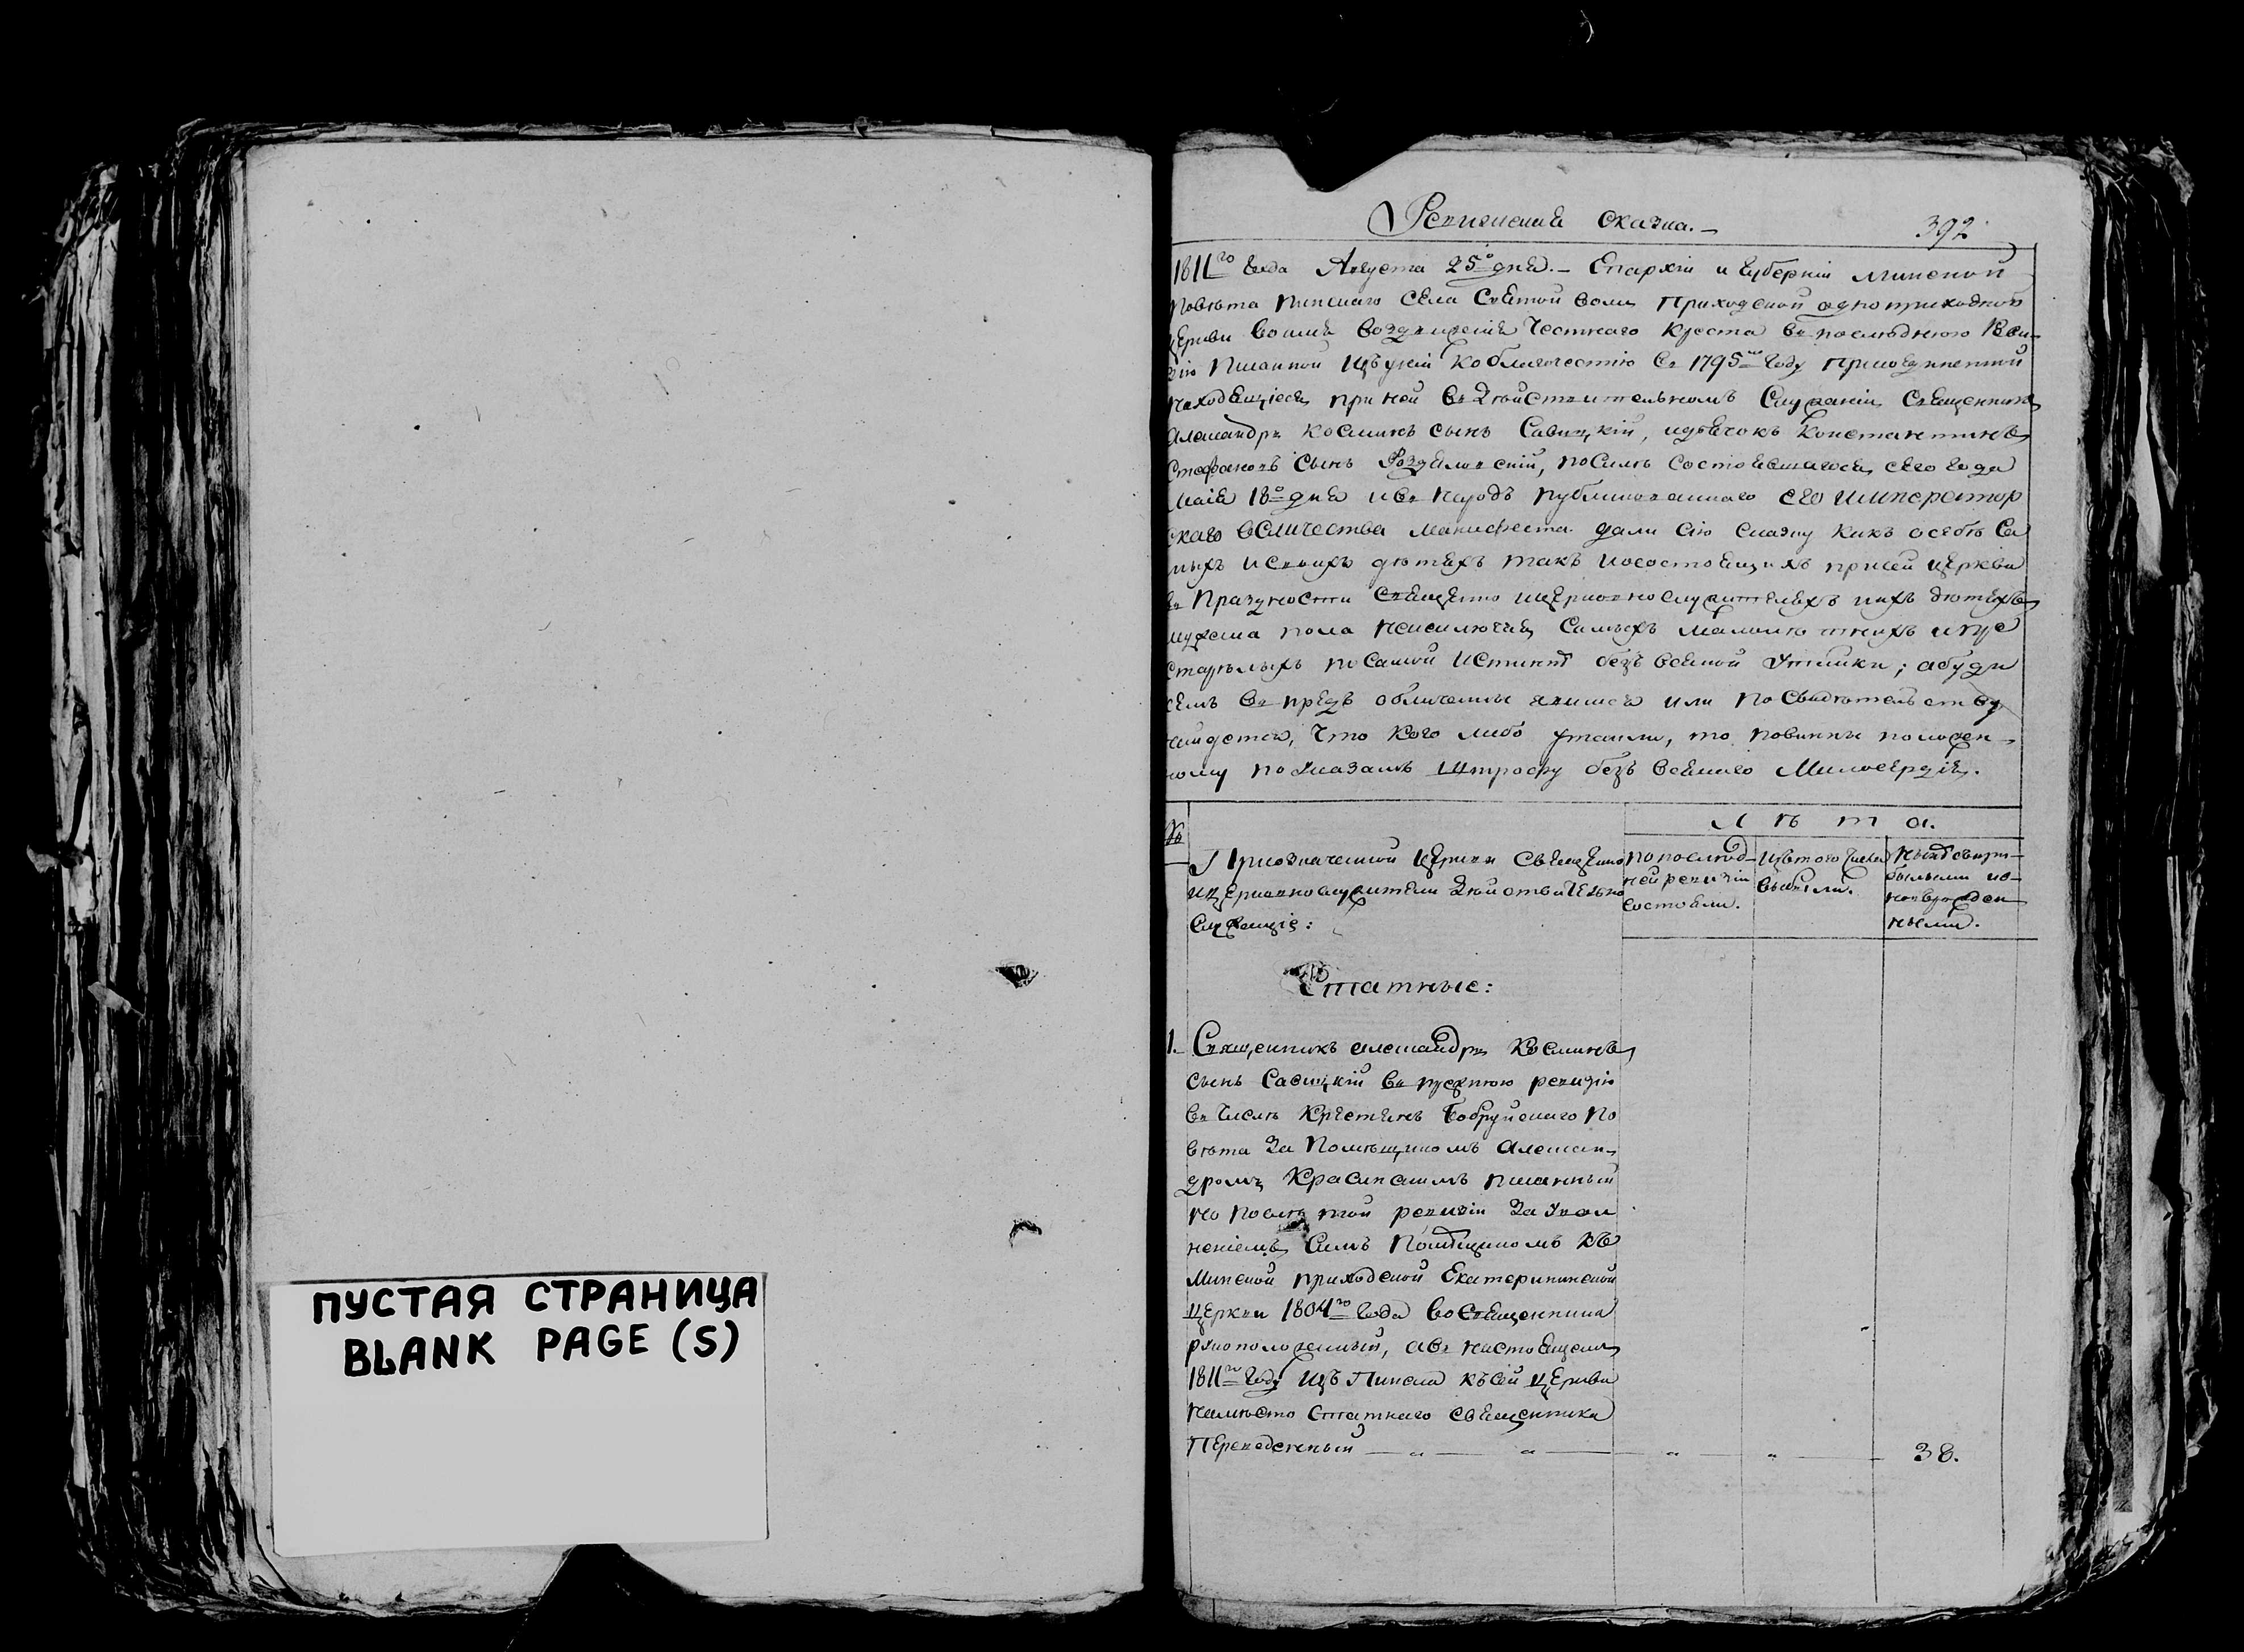 ПУСТАЯ СТРАНИЦА
BLANK PAGE (S)
Ревизская сказка.
392
1811го года Августа 25о дня. Епархіи и Губерніи Минской
Повѣта Пинскаго Села Святой воли Приходской одноприходной
церкви во имя Воздвиженія Честнаго Креста въ послѣднюю Реви-
зію Писанной изъ уніи ко благочестію въ 1795мъ году присоединенной
находящіеся при ней въ дѣйствительномъ служеніи священникъ
Александръ Косминъ сынъ Савицкій, и дьячокъ Константинъ
Стефановъ сынъ, по силѣ состоявшагося сего года
маія 18о дня и въ народъ публикованнаго его император
скаго величества манифеста дали сію сказку какъ о себѣ са
мыхъ и своихъ дѣтяхъ такъ и о состоящихъ при сей церкви
въ праздности священно и церковнослужителяхъ и ихъ дѣтяхъ
мужеска пола не исключая самыхъ малолѣтнихъ и пре
старѣлыхъ по самой истиннѣ безъ всякой утайки; а буди
семъ въ предъ обличенны явимся или по свидѣтельству
найдется, что кого либо утаили, то повинны положен-
ному по указамъ штрафу безъ всякаго милосердія.
№
Лѣта.
При означенной церкви священно
и церковнослужители дѣйствительно
служащіе:
по послѣд-
ней ревизіи
состояли.
изъ того числа
выбыли.
нынѣ съ при-
былыми и но-
ворожден-
ными.
Статные:
1. Священникъ александръ Косминъ
сынъ Савицкій въ прежнюю ревизію
въ числѣ крестянъ Бобруйскаго по
вѣта за помѣщикомъ алексан-
дромъ писанный
но послѣ той ревизіи за увол
неніемъ симъ помѣщикомъ къ
Минской приходской Екатерининской
церкви 1804го года во священника
рукоположенный, а въ настоящемъ
1811мъ году изъ Пинска къ сей церкви
на мѣсто статнаго священника
Переведенный — „ — „ — „ — „ — 38.